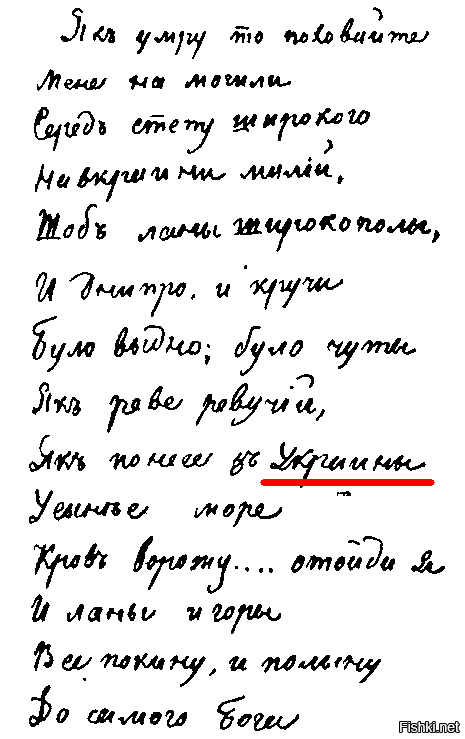 Якъ умру то поховайте
Мене на могили
Середъ степу широкого
На вкраини милій,
Щобъ ланы широкополы,
И Днипро, и кручи
Було выдно; було чуты
Якъ реве ревучій,
Якъ понесе зъ Украины
У сынье море
Кровъ ворожу.... отойди я
И ланы и горы
Все покину, и полыну
До самого Бога
Fishki.net